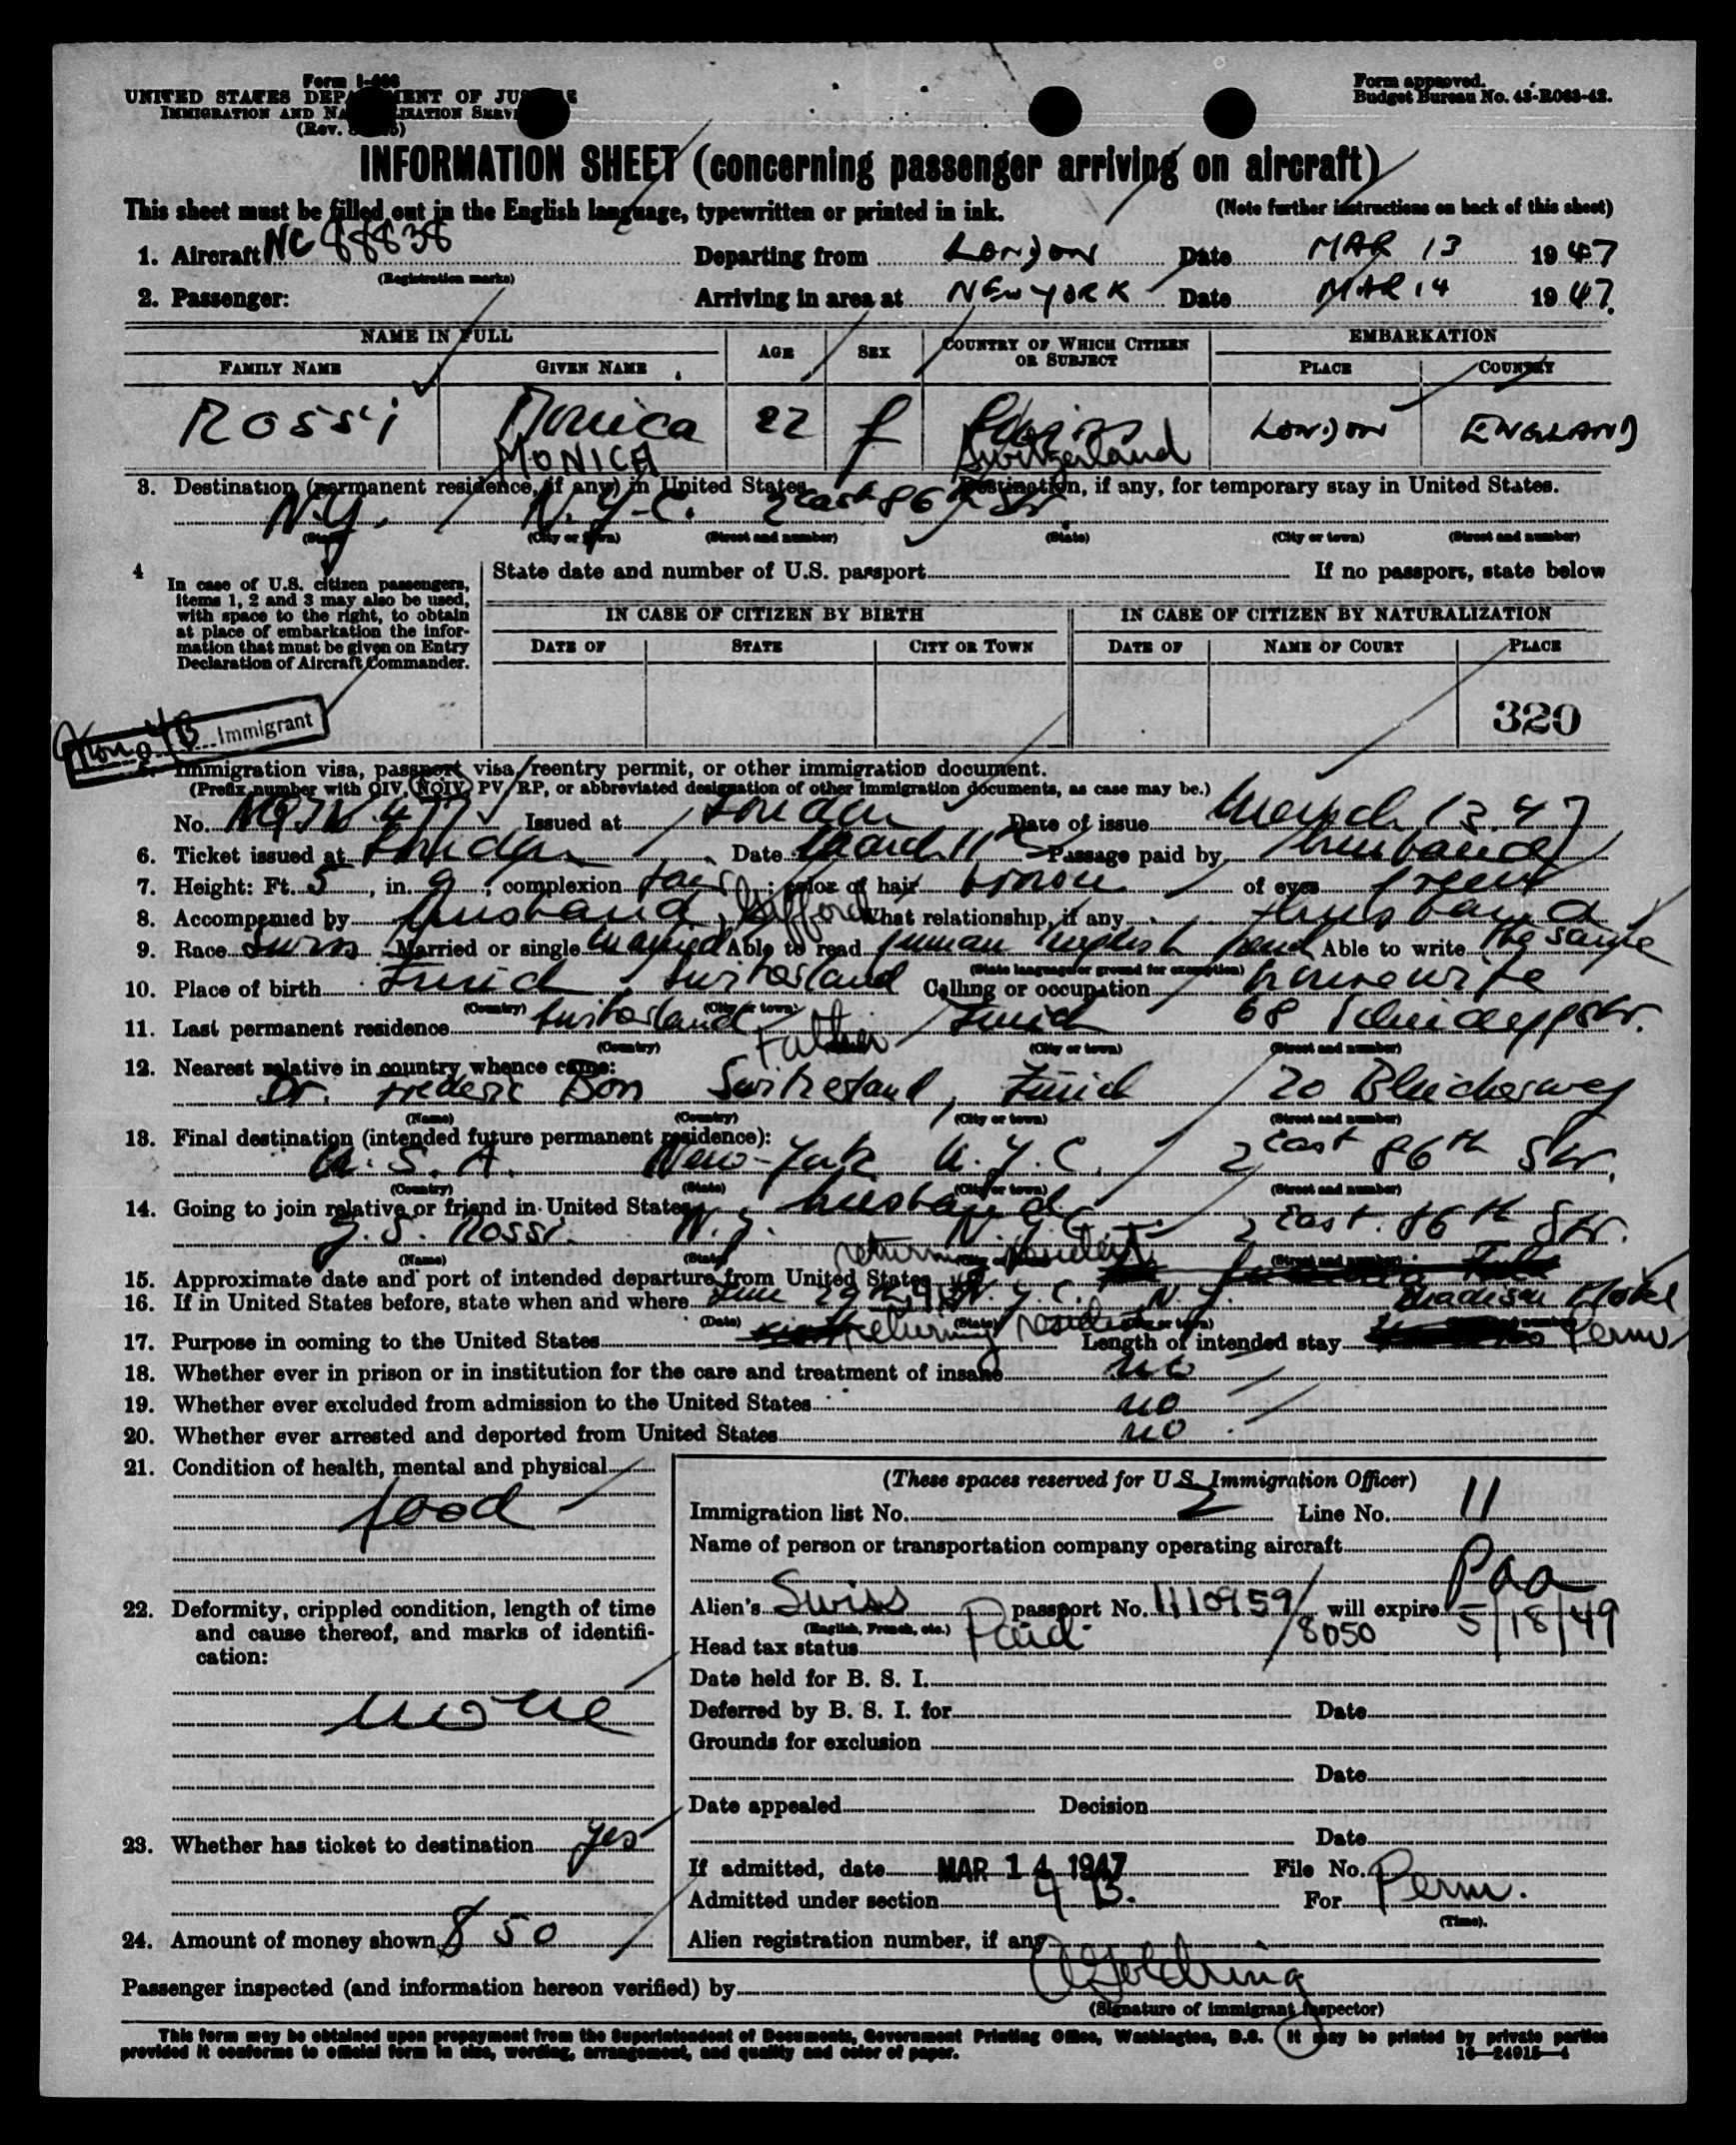 Form I-466
UNITED STATES DEPARTMENT OF JUSTICE
IMMIGRATION AND NATURALIZATION SERVICE
(Rev.
Form approved.
Budget Bureau No. 43-R063-42.
INFORMATION SHEET (concerning passenger arriving on aircraft)
This sheet must be filled out in the English language, typewritten or printed in ink. (Note further instructions on back of this sheet)
1. Aircraft NC 88838 Departing from LONDON Date MAR 13 1947
(Registration marks)
2. Passenger: Arriving in area at NEW YORK Date MAR 14 1947.
NAME IN FULL AGE SEX COUNTRY OF WHICH CITIZEN OR SUBJECT EMBARKATION
FAMILY NAME GIVEN NAME PLACE COUNTRY
ROSSI Monica 22 f LONDON ENGLAND
MONICA Switzerland
3. Destination (permanent residence, if any) in United States Destination, if any, for temporary stay in United States.
N.Y. N.Y.C. 2 East 86th Str.
(State) (City or town) (Street and number) (State) (City or town) (Street and number)
4 In case of U.S. citizen passengers, items 1, 2 and 3 may also be used, with space to the right, to obtain at place of embarkation the information that must be given on Entry Declaration of Aircraft Commander.
State date and number of U.S. passport If no passport, state below
IN CASE OF CITIZEN BY BIRTH IN CASE OF CITIZEN BY NATURALIZATION
DATE OF STATE CITY OR TOWN DATE OF NAME OF COURT PLACE
320
4 B Immigrant
5. Immigration visa, passport visa, reentry permit, or other immigration document.
(Prefix number with QIV, NQIV, PV, RP, or abbreviated designation of other immigration documents, as case may be.)
No. NQIV 477 Issued at London Date of issue March 13. 47
6. Ticket issued at London Date March 11 Passage paid by husband
7. Height: Ft. 5, in. 9; complexion fair; color of hair brown of eyes green
8. Accompanied by husband, What relationship, if any husband
9. Race Swiss Married or single married Able to read german english french Able to write the same
(State language or ground for exemption)
10. Place of birth Zurich, Switzerland Calling or occupation housewife
(Country) (City or town)
11. Last permanent residence Switzerland Zurich 68
(Country) (City or town) (Street and number)
Father
12. Nearest relative in country whence came:
Dr. Frederic Bon Switzerland, Zurich 20 Bleicherweg
(Name) (Country) (City or town) (Street and number)
13. Final destination (intended future permanent residence):
U.S.A. New-York N.Y.C. 2 East 86th Str.
(Country) (State) (City or town) (Street and number)
14. Going to join relative or friend in United States husband
J. S. Rossi. N.Y. N.Y.C. 2 East. 86th Str.
(Name) (State) (Street and number)
returning resident
15. Approximate date and port of intended departure from United States
16. If in United States before, state when and where June 29th N.Y.C. N.Y. Madison Hotel
(Date) (State) (City or town)
17. Purpose in coming to the United States returning resident Length of intended stay Perm
18. Whether ever in prison or in institution for the care and treatment of insane no
19. Whether ever excluded from admission to the United States no
20. Whether ever arrested and deported from United States no
21. Condition of health, mental and physical
good
22. Deformity, crippled condition, length of time and cause thereof, and marks of identification:
none
23. Whether has ticket to destination yes
24. Amount of money shown $ 50
(These spaces reserved for U.S. Immigration Officer)
Immigration list No. 2 Line No. 11
Name of person or transportation company operating aircraft
Paa
Alien's Swiss passport No. 1110959/8050 will expire 5/18/49
(English, French, etc.)
Head tax status Paid
Date held for B. S. I.
Deferred by B. S. I. for Date
Grounds for exclusion
Date
Date appealed Decision
Date
If admitted, date MAR 14 1947 File No.
Admitted under section 4 B. For Perm.
(Time).
Alien registration number, if any
Passenger inspected (and information hereon verified) by
(Signature of immigrant inspector)
This form may be obtained upon prepayment from the Superintendent of Documents, Government Printing Office, Washington, D.C. It may be printed by private parties
provided it conforms to official form in size, wording, arrangement, and quality and color of paper. 16—24915-4